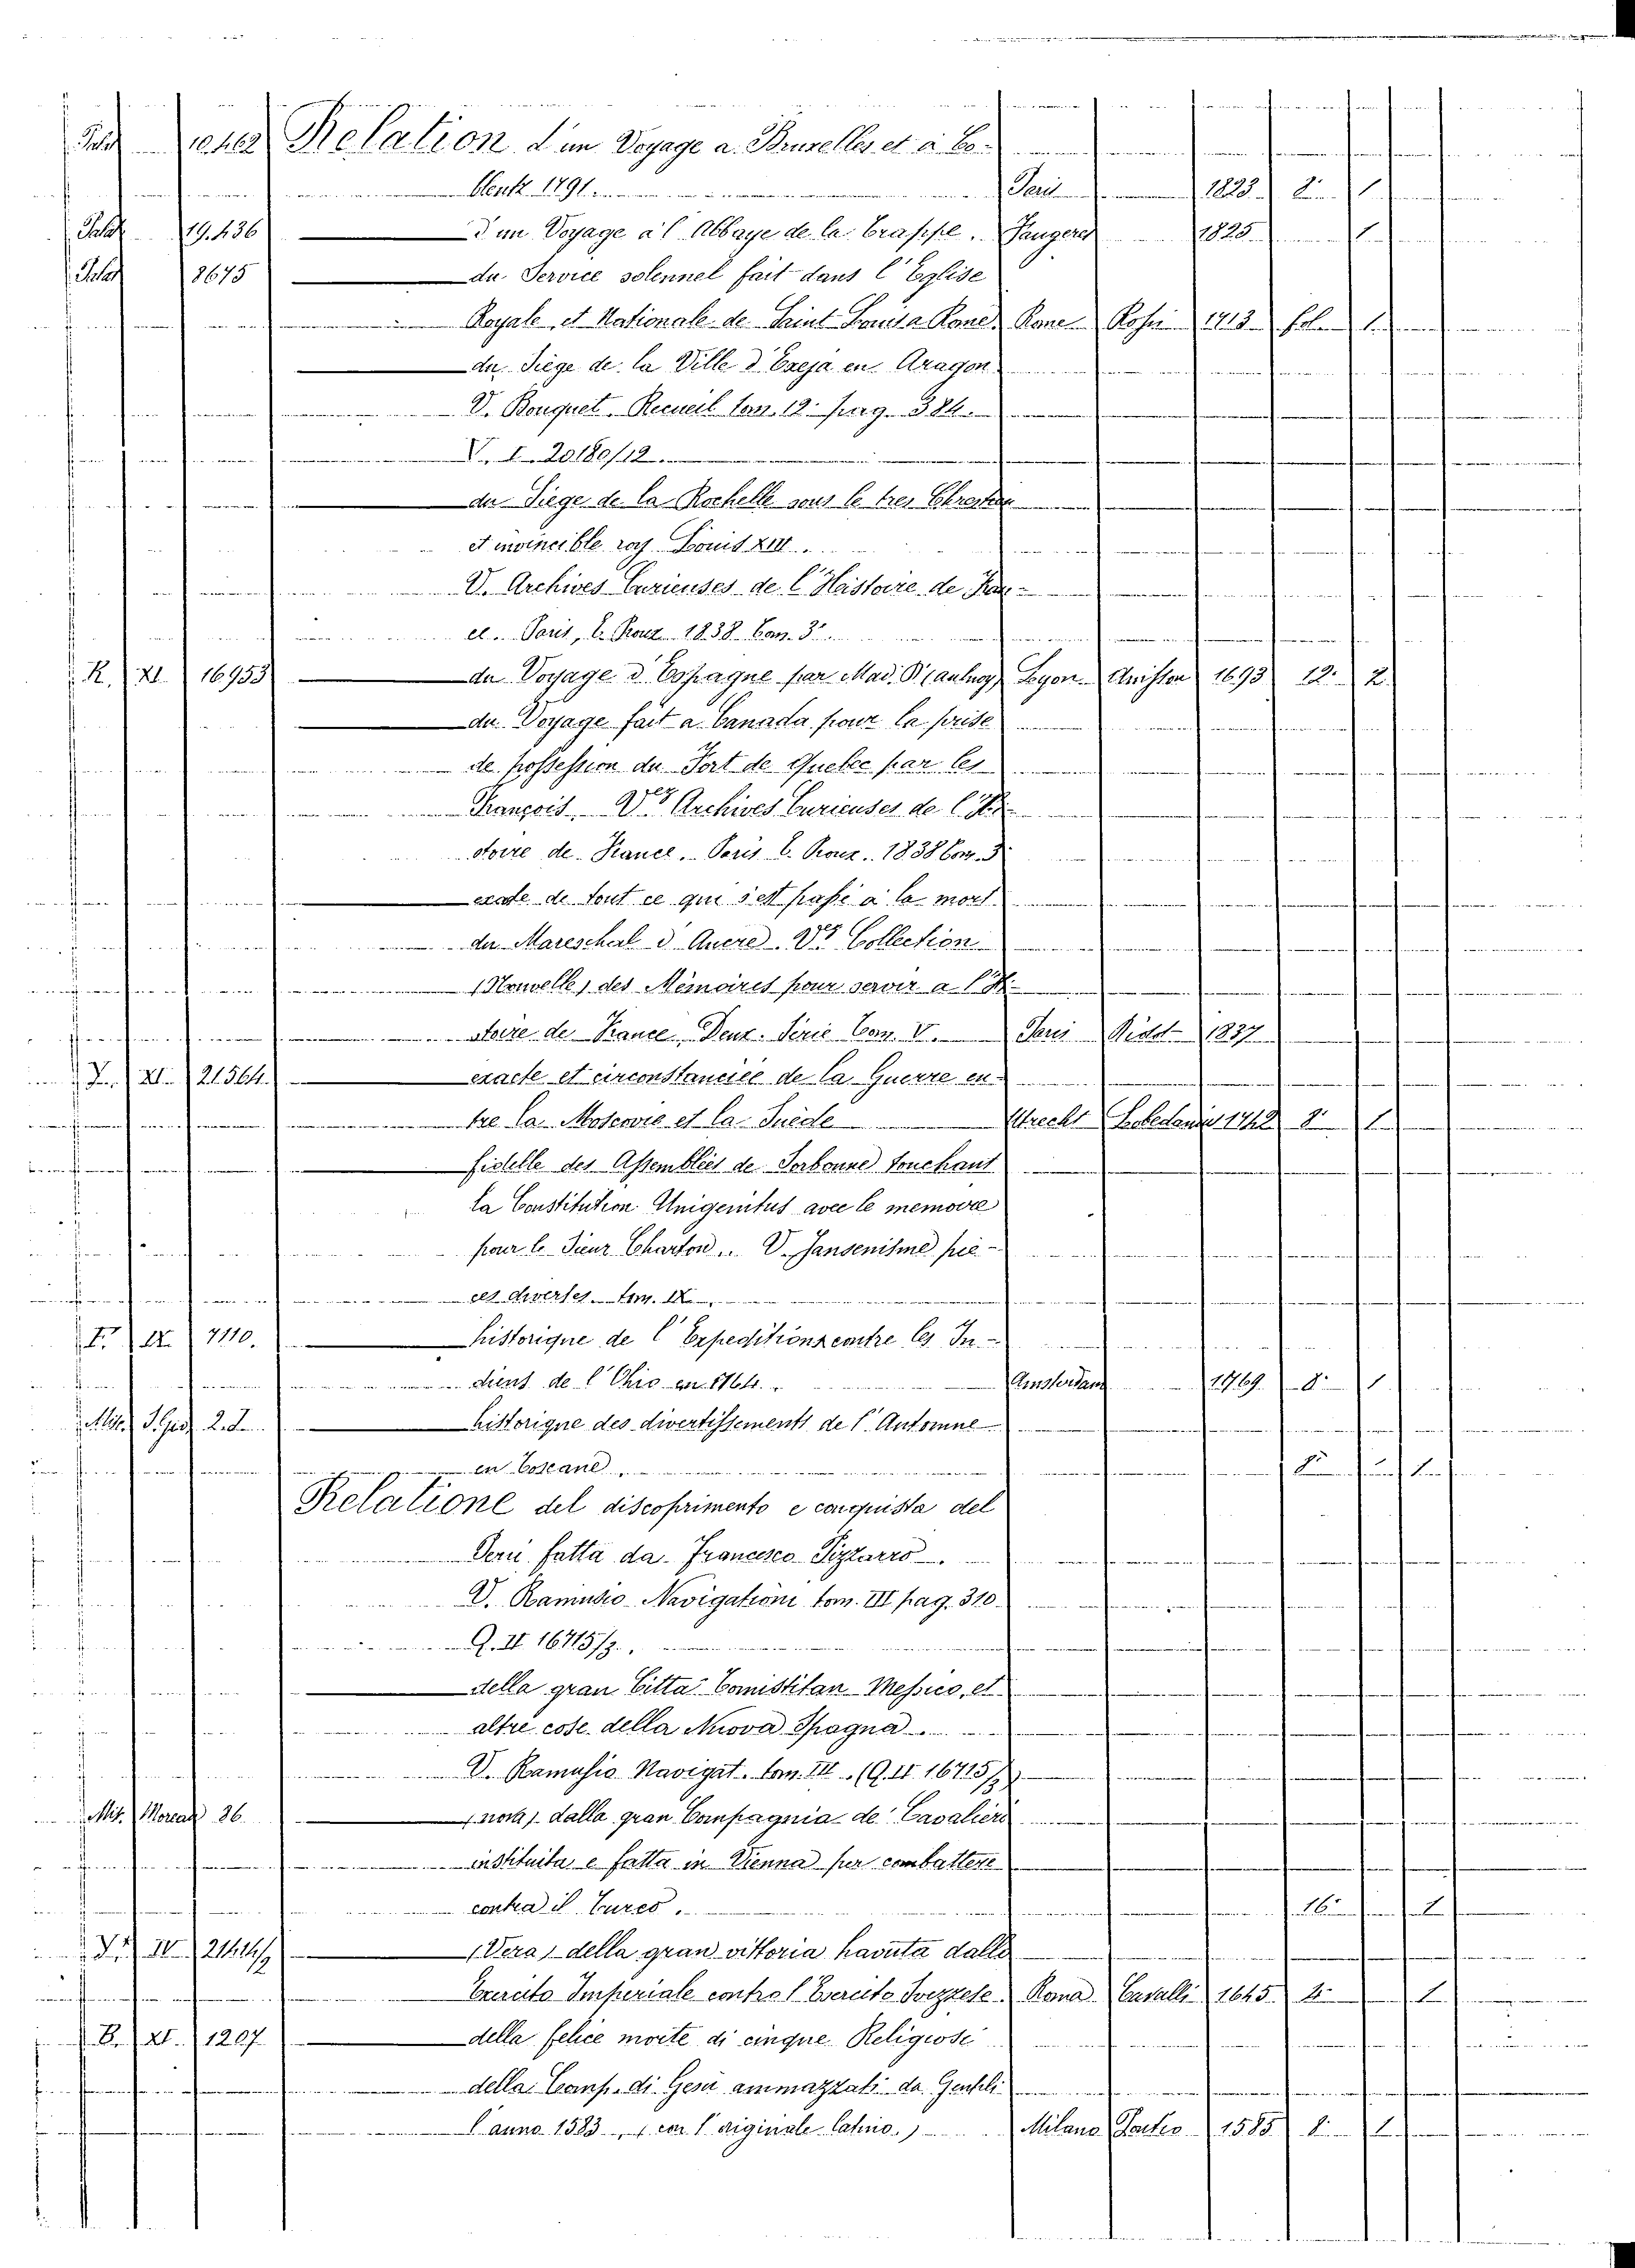 Relation d'un Voyage a Bruxelles et à Co-
blentz 1791. Paris 1823 8° 1
19.436 d'un Voyage à l'Abbaye de la Trappe. Fangeres 1825 1
8675 du Service solennel fait dans l'Eglise
Royale et Nationale de Saint Louis a Rome. Rome Rossi 1713 fol. 1.
du Siége de la Ville d'Exeja en Aragon
V. Bouquet. Recueil tom. 12. pag. 384.
V. I. 20180/12.
du Siege de la Rochelle sous le tres Chrestien
et invincible roy Louis XIII.
V. Archives Curieuses de l'Histoire de Fran-
ce. Paris, 1838 Tom. 3°
R. XI. 16953 du Voyage d'Espagne par Mad. D'(aulnoy) Lyon. Anisson 1693 12° 2.
du Voyage fait a Canada pour la prise
de possession du Fort de Quebec par les
François. V. Archives Curieuses de l'Hi-
stoire de France. Paris 1838 Tom. 3
exacte de tout ce qui s'est passé a la mort
du Mareschal d'Ancre. V. Collection
(Nouvelle) des Mémoires pour servir a l'Hi-
stoire de France, Deux. Série Tom. V. Paris Didot 1837
XI. 21564. exacte et circonstanciée de la Guerre en-
tre la Moscovie et la Suède Utrecht 1742 8° 1
fidelle des Assemblées de Sorbonne touchant
la Constitution Unigenitus avec le memoire
pour le Sieur Charton. V. Jansenisme pie-
ces diverses. tom. IX.
F. IX. 7110. historique de l'Expedition contre les In-
diens de l'Ohio en 1764. Amsterdam 1769 8° 1
Mis. 2. historique des divertissements de l'Automne
en Toscane. 8° 1
Relatione del discoprimento e conquista del
Perú fatta da Francesco Pizzarro.
V. Ramusio Navigationi tom. III pag. 310.
Q. II 16715/3.
della gran Citta Temistitan Messico, et
altre cose della Nuova Spagna.
V. Ramusio Navigat. tom. III. (Q. II 16715/3)
Mis. Morcaf 36. (nova) dalla gran Compagnia de' Cavalieri
instituita e fatta in Vienna per combattere
contra il Turco. 16° 1
IV (Vera) della gran vittoria havuta dallo
Exercito Imperiale contro l'Esercito Svezzese. Roma Cavalli 1645 4° 1
B. XI. 1207 della felice morte di cinque Religiosi
della Comp. di Gesú ammazzati da Gentili
l'anno 1583, (con l'originale latino.) Milano 1585 8° 1